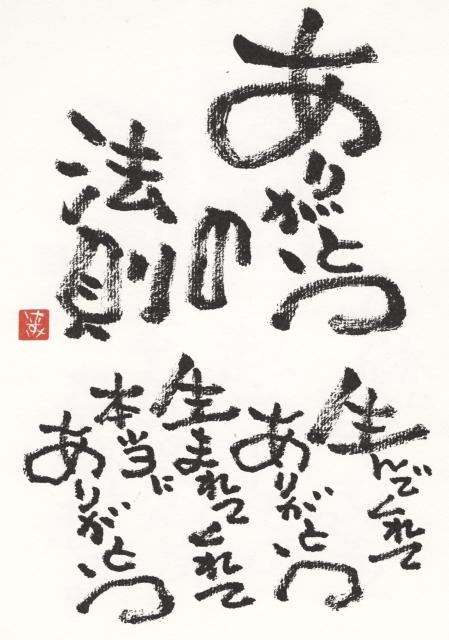 ありがとう
の
法則
生んでくれて
ありがとう
生まれてくれて
本当に
ありがとう